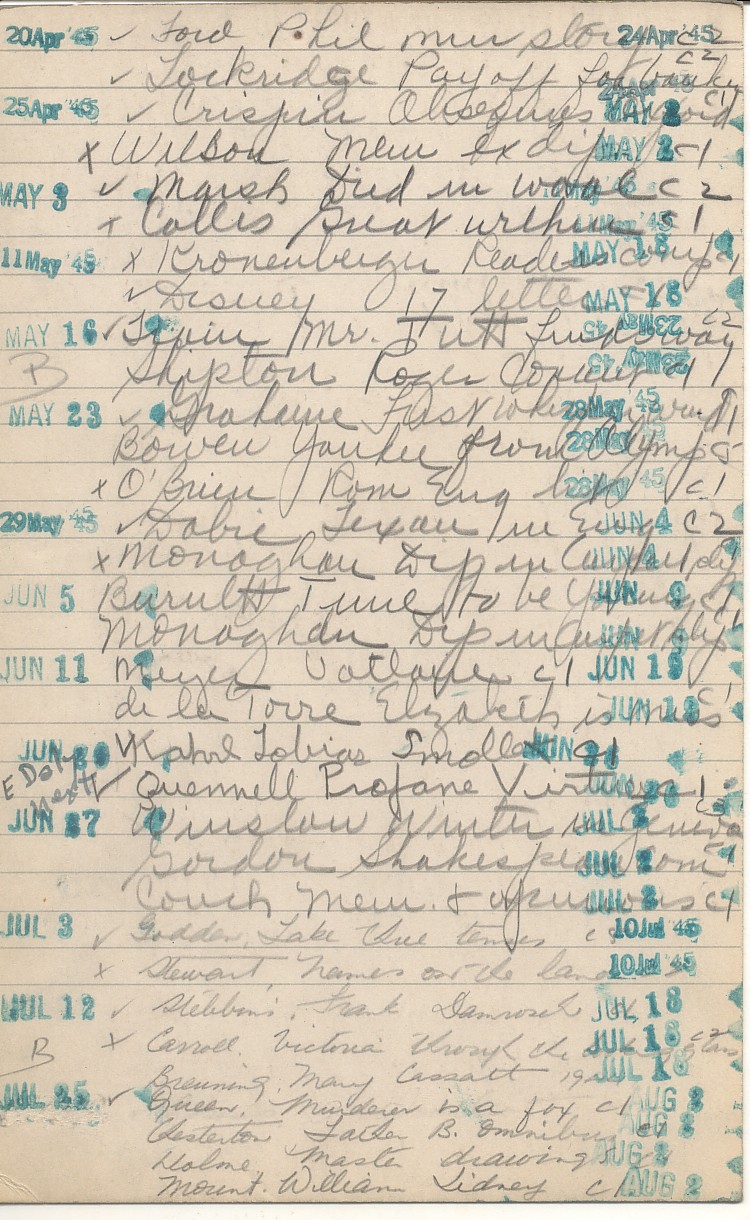 20Apr'45 ✓ Ford Phil mur story 24Apr'45 c2
✓ Lockridge Payoff for banker c2
25Apr'45 ✓ Crispin Obsequies MAY 2 c1
x Wilson Mem ex dip MAY 2 c1
MAY 3 ✓ Marsh Died in wool c2
x Collis Great within c1
11May'45 x Kronenberger Readers comp MAY 18 c1
✓ Disney 17 letters MAY 18
MAY 16 ✓ Train Mr. Tutt finds way 23May45 c2
B Shipton Roger Conant 23May45 c1
MAY 23 ✓ Grahame Last 28May45 c1
Bowen Yankee from Olympus 28May45
x O'Brien Rom Eng 28May45 c1
29May'45 ✓ Dobie Texan in Eng JUN 4 c2
x Monaghan Dip in Carpet JUN 4
JUN 5 Burnett Time to be Young JUN 9 c1
Monaghan Dip in Carpet JUN 9 c1
JUN 11 Meyer Voltaire c1 JUN 19
de la Torre Elizabeth is miss JUN 18 c1
JUN 20 ✓ Kahrl Tobias Smollett c1
✓ Quennell Profane Virtues c1
JUN 27 Winslow Winter in Geneva JUL 2 c2
Gordon Shakespear com JUL 2 c1
Couch Mem. & opinions JUL 2 c1
JUL 3 ✓ Godden, Take three tenses 10Jul'45
x Stewart, Names on the land 10Jul'45
JUL 12 ✓ Stebbins, Frank Damrosch JUL 18
B x Carroll. Victoria through the looking glass JUL 18 c2
Breuning, Mary Cassatt JUL 18
JUL 25 ✓ Queen, Murderer is a fox c1 AUG 2
Chesterton Father B. Omnibus c1 AUG 2
Holme, Master drawings AUG 2
Mount. William Sidney c1 AUG 2